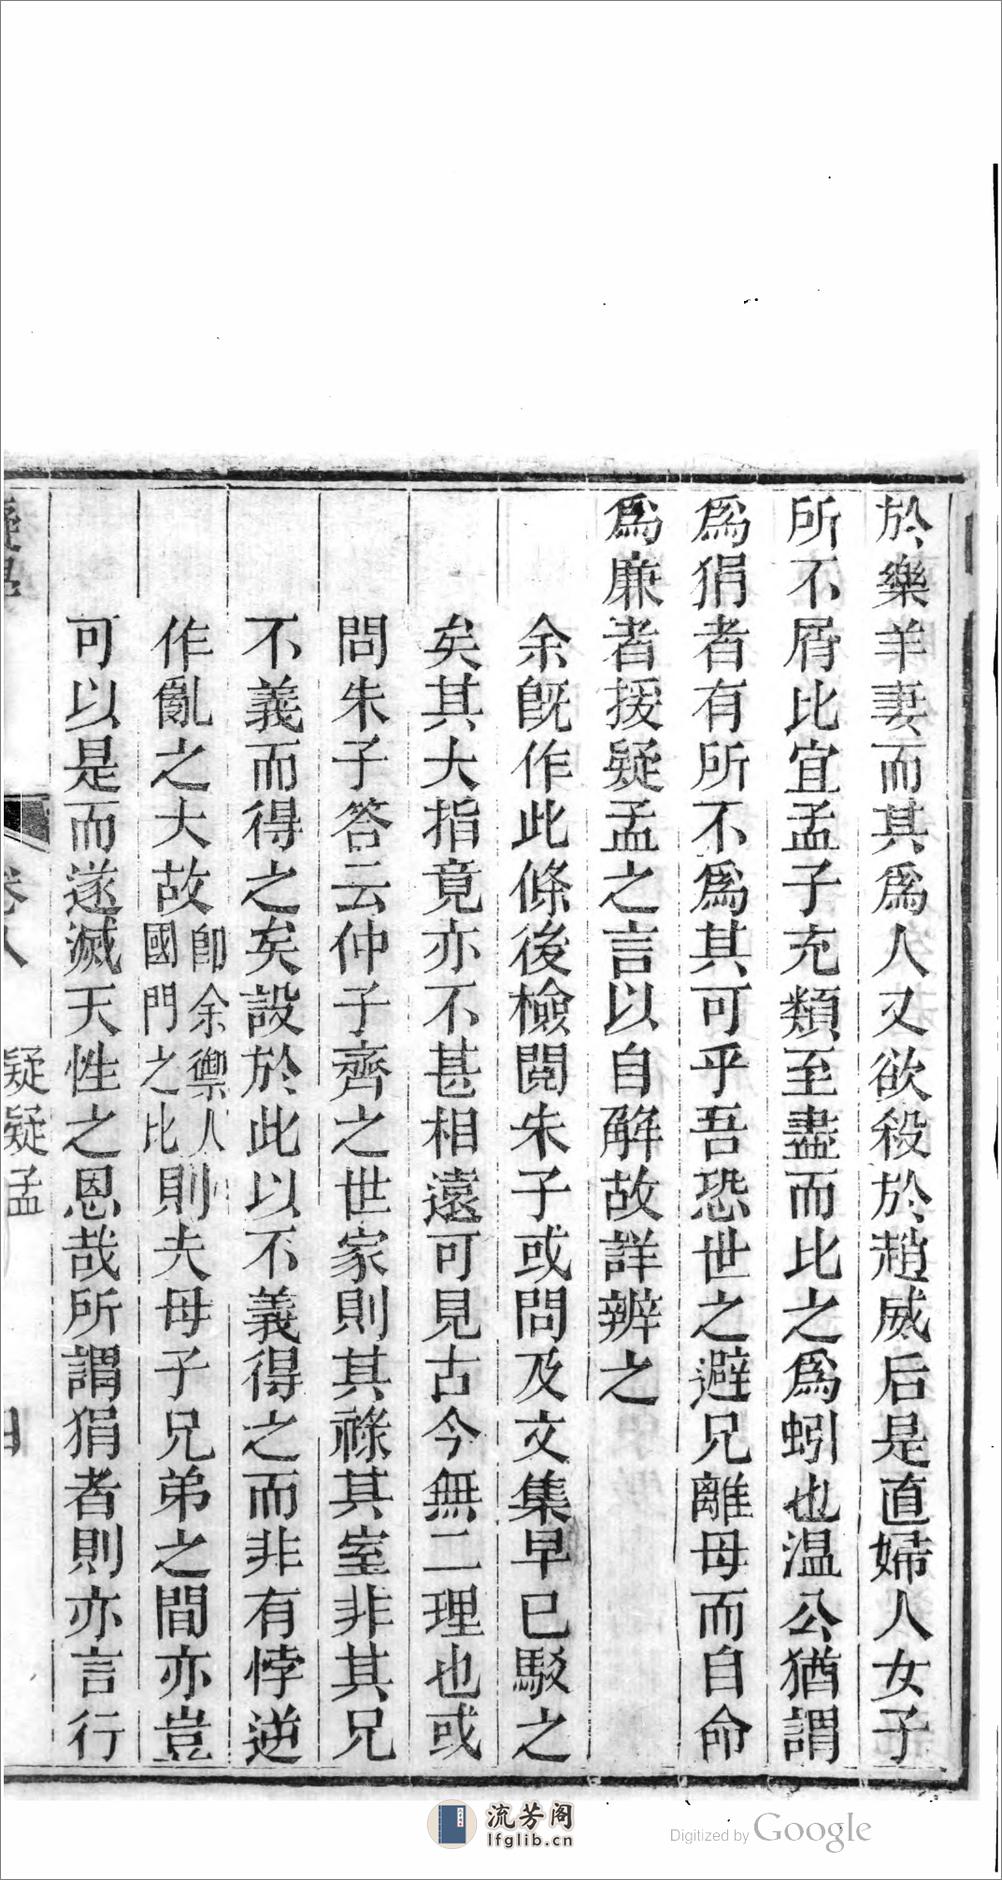 於樂羊妻而其為人又欲殺於趙威后是直婦人女子
所不屑比宜孟子充類至盡而比之為蚓也温公猶謂
為狷者有所不為其可乎吾恐世之避兄離母而自命
為廉者援疑孟之言以自解故詳辨之
余旣作此條後檢閱朱子或問及文集早已駁之
矣其大指竟亦不甚相遠可見古今無二理也或
問朱子答云仲子齊之世家則其祿其室非其兄
不義而得之矣設於此以不義得之而非有悖逆
作亂之大故卽余禦人國門之比則夫母子兄弟之間亦豈
可以是而遂滅天性之恩哉所謂狷者則亦言行
卷八
疑疑孟
流芳阁
lfglib.cn
Digitized by Google